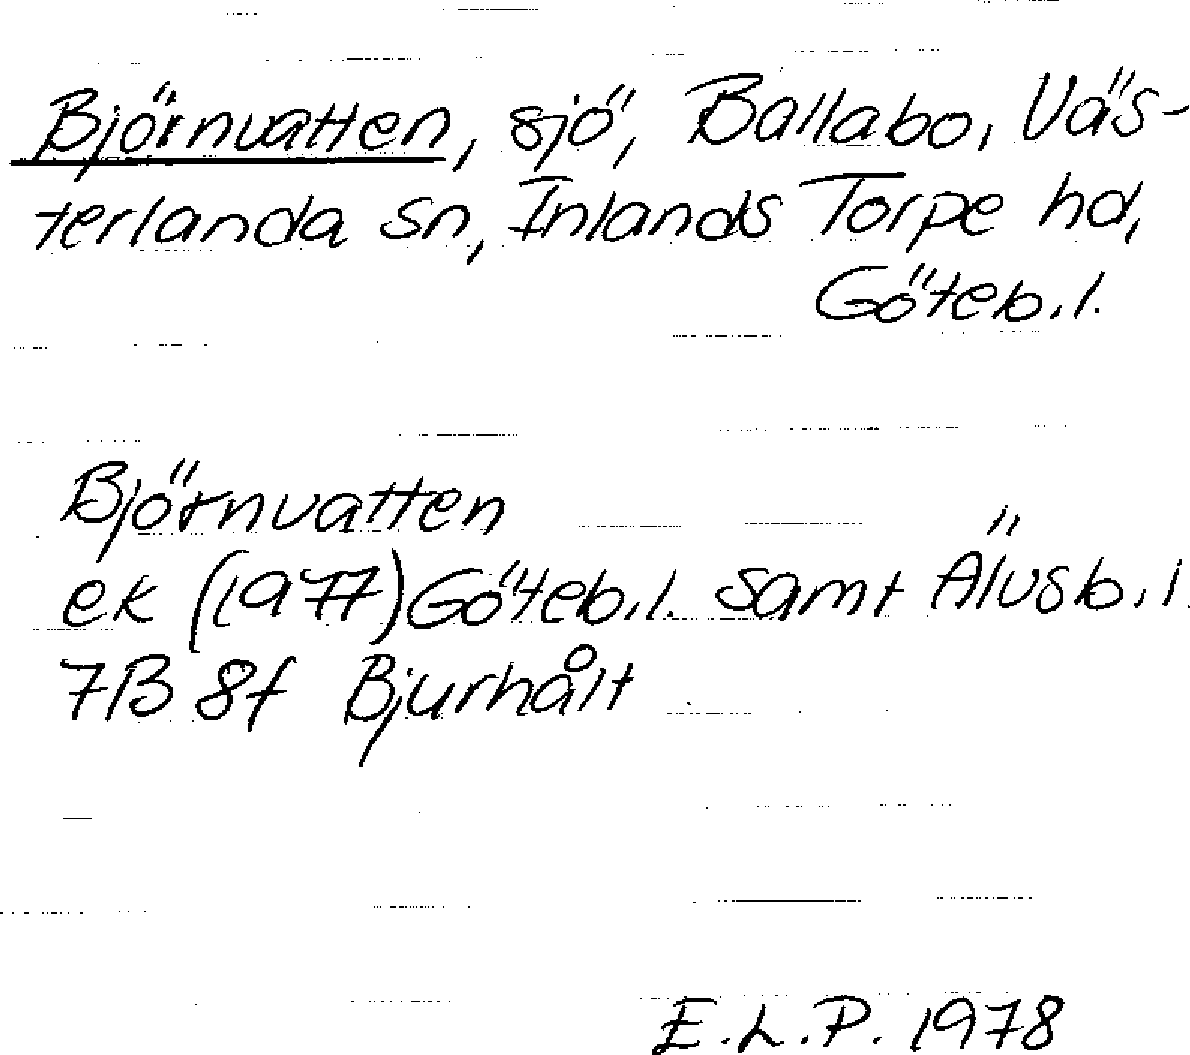 Björnvatten, sjö, Ballabo, Väs-
terlanda sn, Inlands Torpe hd,
Göteb.l.
Björnvatten
ek (1977) Göteb.l. samt Älvsb.l.
7B 8f Bjurhålt
E.L.P. 1978